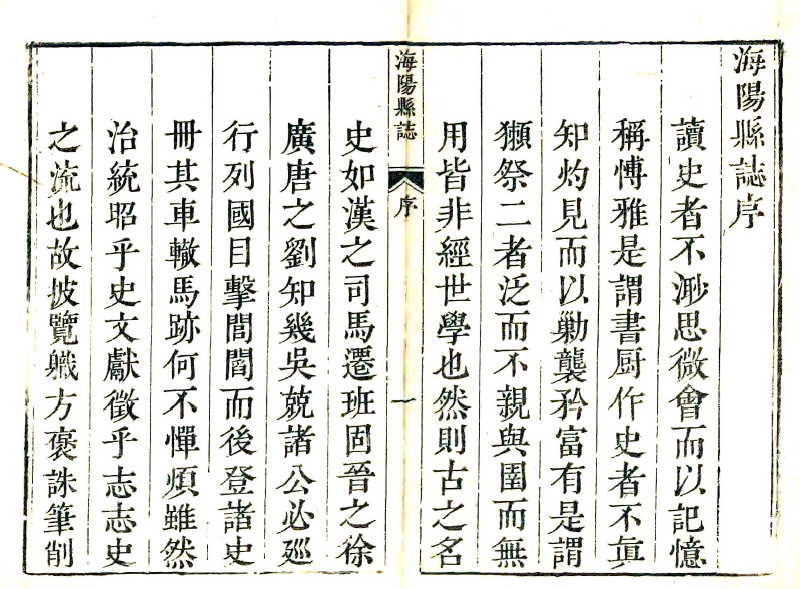 海陽縣誌序
讀史者不渺思微會而以記憶
稱愽雅是謂書厨作史者不眞
知灼見而以勦襲矜富有是謂
獺祭二者泛而不親與圄而無
用皆非經世學也然則古之名
海陽縣誌
序
一
史如漢之司馬遷班固晉之徐
廣唐之劉知幾吳兢諸公必廵
行列國目擊閭閻而後登諸史
冊其車轍馬跡何不憚煩雖然
治統昭乎史文獻徵乎志志史
之流也故披覽軄方褒誅筆削